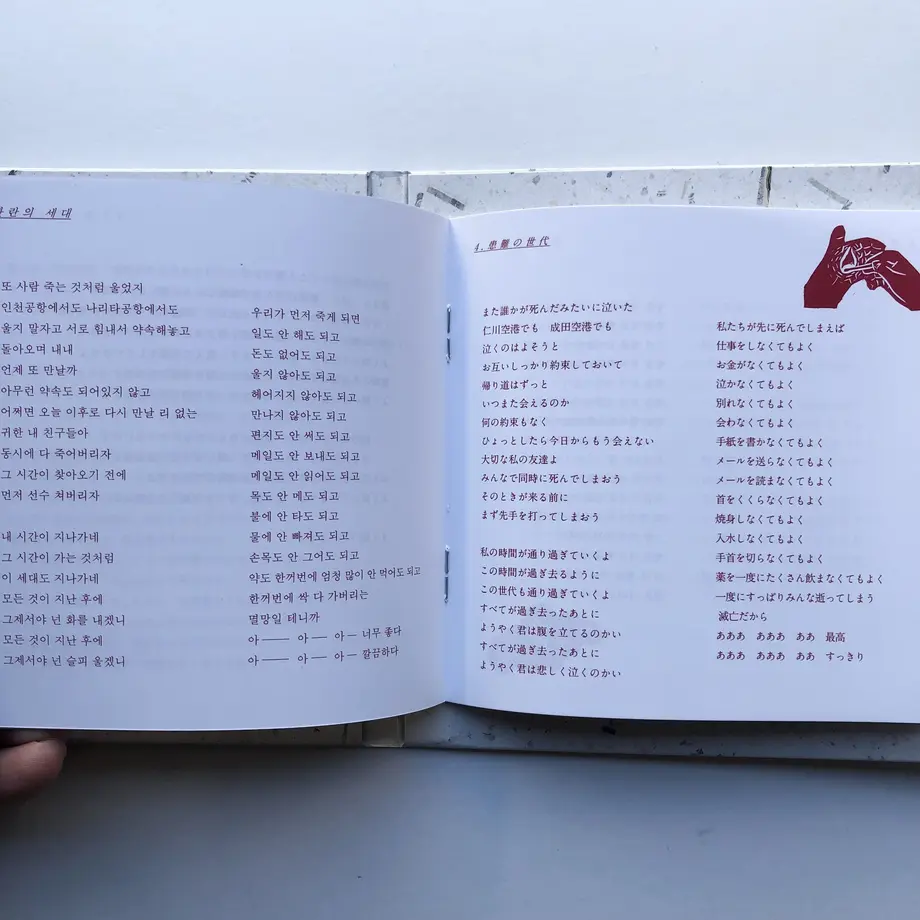 란의 세대
또 사람 죽는 것처럼 울었지
인천공항에서도 나리타공항에서도
울지 말자고 서로 힘내서 약속해놓고
돌아오며 내내
언제 또 만날까
아무런 약속도 되어있지 않고
어쩌면 오늘 이후로 다시 만날 리 없는
귀한 내 친구들아
동시에 다 죽어버리자
그 시간이 찾아오기 전에
먼저 선수 쳐버리자
내 시간이 지나가네
그 시간이 가는 것처럼
이 세대도 지나가네
모든 것이 지난 후에
그제서야 넌 화를 내겠니
모든 것이 지난 후에
그제서야 넌 슬피 울겠니
우리가 먼저 죽게 되면
일도 안 해도 되고
돈도 없어도 되고
울지 않아도 되고
헤어지지 않아도 되고
만나지 않아도 되고
편지도 안 써도 되고
메일도 안 보내도 되고
메일도 안 읽어도 되고
목도 안 메도 되고
불에 안 타도 되고
물에 안 빠져도 되고
손목도 안 그어도 되고
약도 한꺼번에 엄청 많이 안 먹어도 되고
한꺼번에 싹 다 가버리는
멸망일 테니까
아 —— 아 — 아 — 너무 좋다
아 —— 아 — 아 — 깔끔하다
4. 患難の世代
また誰かが死んだみたいに泣いた
仁川空港でも 成田空港でも
泣くのはよそうと
お互いしっかり約束しておいて
帰り道はずっと
いつまた会えるのか
何の約束もなく
ひょっとしたら今日からもう会えない
大切な私の友達よ
みんなで同時に死んでしまおう
そのときが来る前に
まず先手を打ってしまおう
私の時間が通り過ぎていくよ
この時間が過ぎ去るように
この世代も通り過ぎていくよ
すべてが過ぎ去ったあとに
ようやく君は腹を立てるのかい
すべてが過ぎ去ったあとに
ようやく君は悲しく泣くのかい
私たちが先に死んでしまえば
仕事をしなくてもよく
お金がなくてもよく
泣かなくてもよく
別れなくてもよく
会わなくてもよく
手紙を書かなくてもよく
メールを送らなくてもよく
メールを読まなくてもよく
首をくくらなくてもよく
焼身しなくてもよく
入水しなくてもよく
手首を切らなくてもよく
薬を一度にたくさん飲まなくてもよく
一度にすっぱりみんな逝ってしまう
滅亡だから
あああ あああ ああ 最高
あああ あああ ああ すっきり